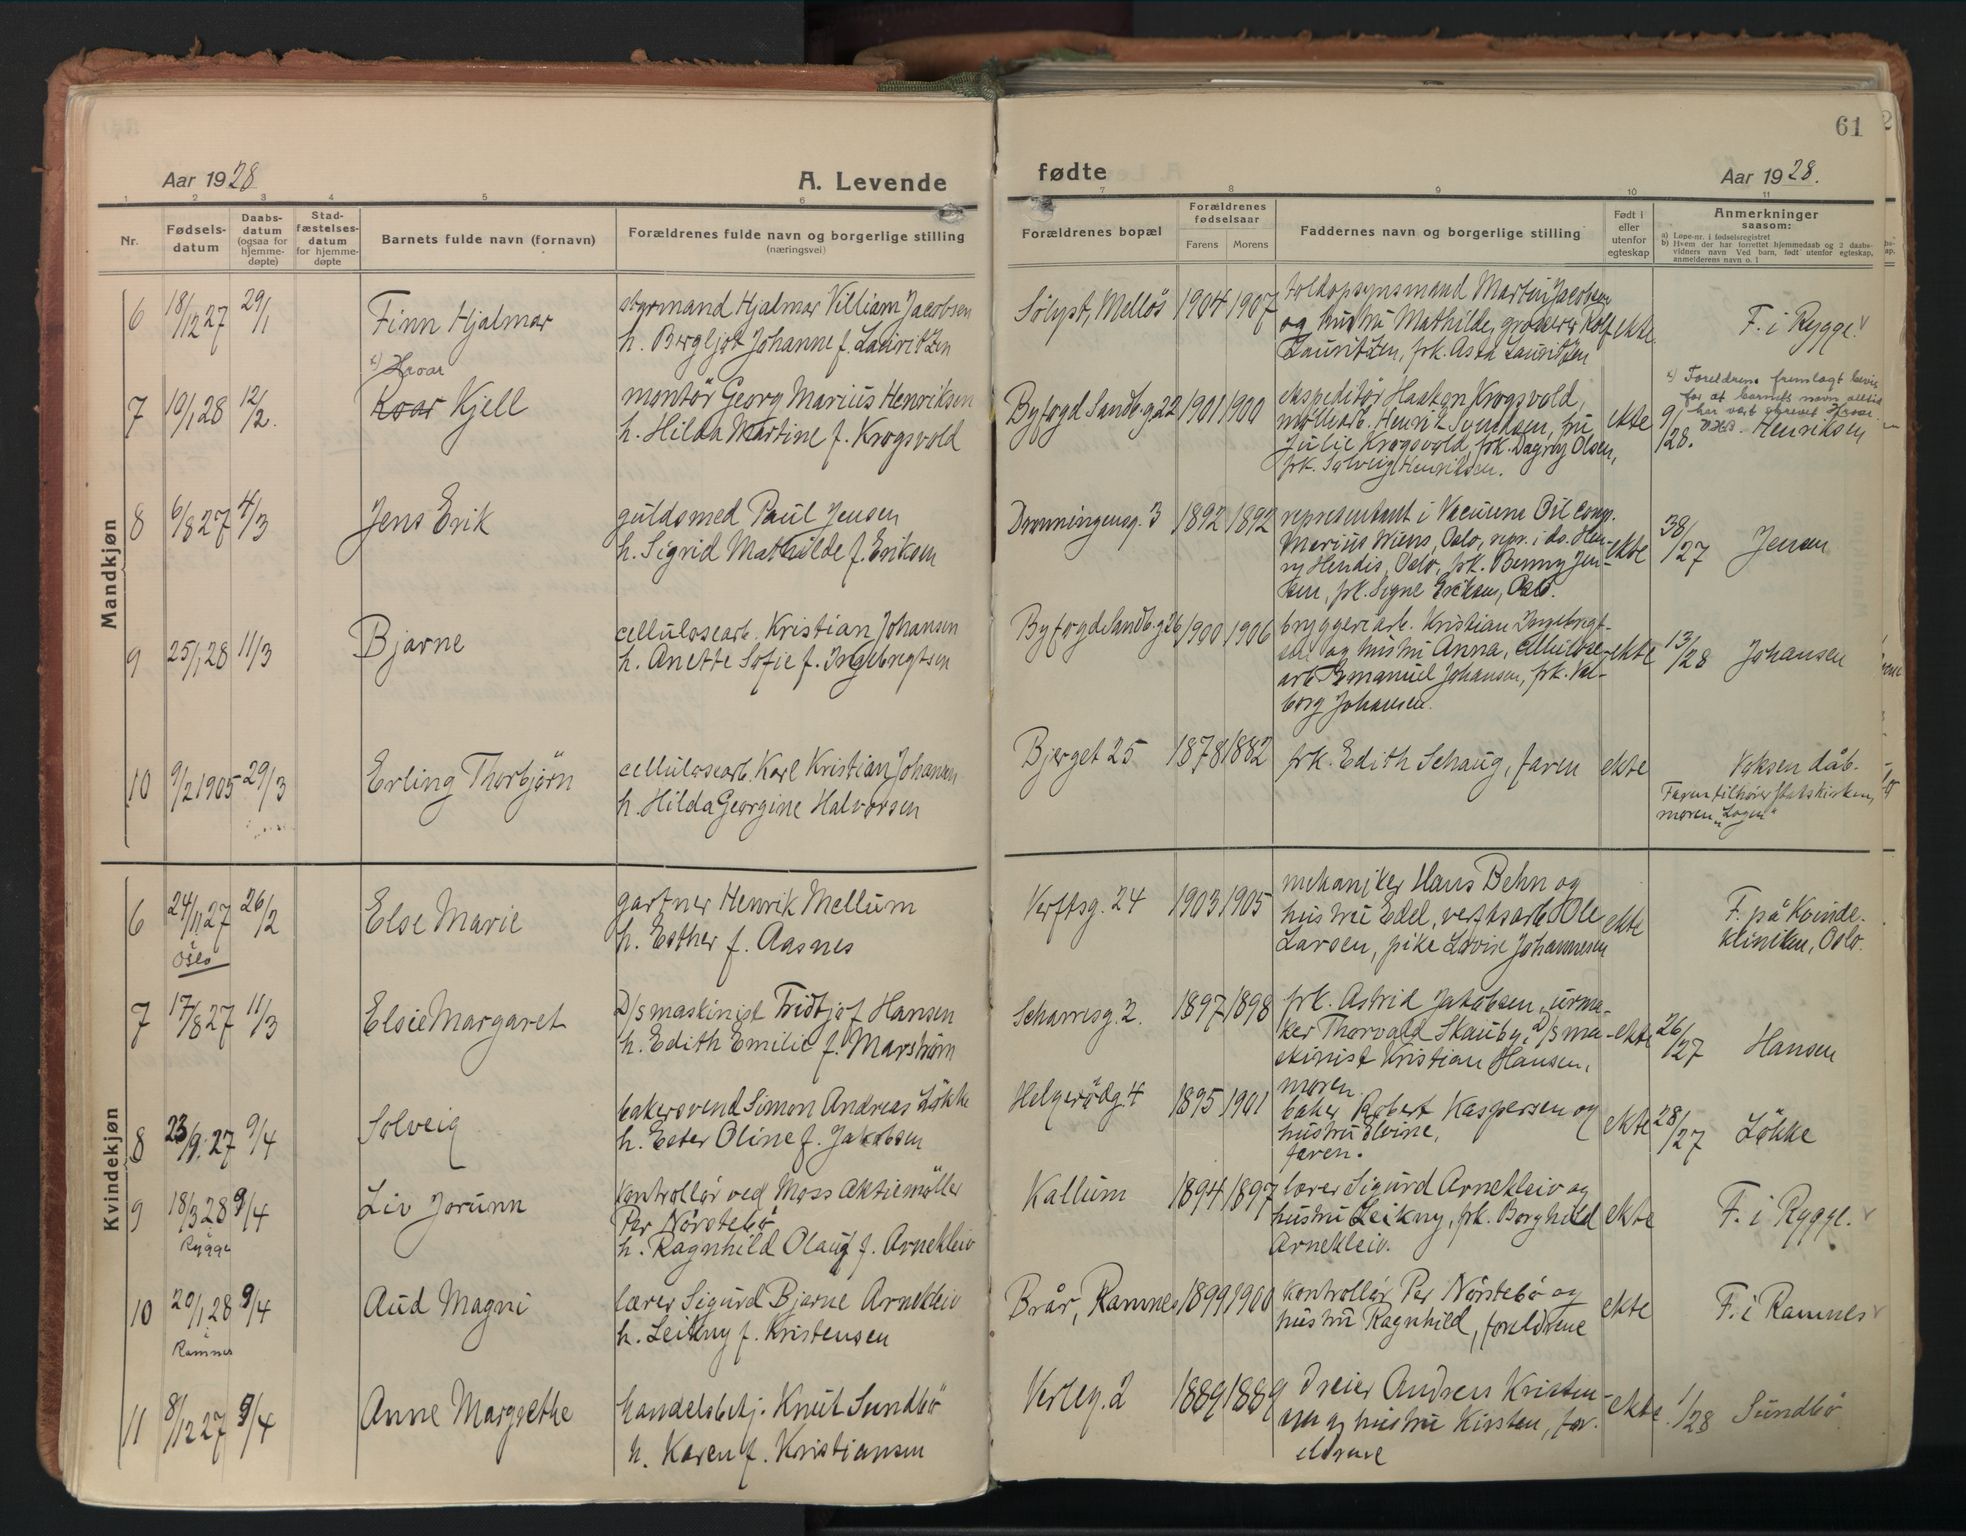 61
Aar 1928
A. Levende
fødte
Aar 1928.
1 2 3 4 5 6 7 8 9 10 11
Nr.
Fødsels-
datum
Daabs-
datum
(ogsaa for
hjemme-
døpte)
Stad-
fæstelses-
datum
for hjemme-
døpte
Barnets fulde navn (fornavn)
Forældrenes fulde navn og borgerlige stilling
(næringsvei)
Forældrenes bopæl
Forældrenes
fødselsaar
Farens Morens
Faddernes navn og borgerlige stilling
Født i
eller
utenfor
egteskap
Anmerkninger
saasom:
a) Løpe-nr. i fødselsregistret
b) Hvem der har forrettet hjemmedaab og 2 daabs-
vidners navn Ved barn, født utenfor egteskap,
anmelderens navn o. l
Mandkjøn
6 18/12 27 29/1 Finn Hjalmar
styrmand Hjalmar Villiam Jacobsen
h. Bergljot Johanne f. Lauritzen
Sölyst, Mellös 1904 1907
toldopsynsmand Martin Jacobsen
og hustru Mathilde, grosserer Rolf
Lauritzen, frk. Asta Lauritzen
ekte. F. i Rygge v
x) Hroar
7 10/1 28 12/2. Roar Kjell
montör Georg Marius Henriksen
h. Hilda Martine f. Krogsvold
Byfogd Sandb. g 22 1901 1900
ekspeditör Haaken Krogsvold,
möllearb. Henrik Syversen, fru
Julie Krogsvold, frk. Dagny Olsen,
frk. Solveig Henriksen.
ekte 9/28.
x) Foreldrene fremlagt bevis
for at barnets navn alltid
har vært skrevet Hroar.
Henriksen
8 6/8 27 4/3 Jens Erik
guldsmed Paul Jensen
h. Sigrid Mathilde f. Eriksen
Dronningensg. 3 1892 1892
representant i Vacuum Oil Comp.
Marius Wiens, Oslo, repr. i do. Hen-
ny Hendis, Oslo, frk. Benny Jen-
sen, frk. Signe Eriksen, Oslo.
ekte 38/27 Jensen
9 25/1 28 11/3 Bjarne
cellulosearb. Kristian Johansen
h. Anette Sofie f. Ingebregtsen
Byfogd Sandb. g 26 1900 1906
bryggeriarb. Kristian Ingebregt-
sen og hustru Anna, cellulose-
arb. Emanuel Johansen, frk. Val-
borg Johansen.
ekte 13/28 Johansen
10 9/2 1905 29/3 Erling Thorbjörn
cellulosearb. Karl Kristian Johansen
h. Hilda Georgine Halvorsen
Bjerget 25 1878 1882
frk. Edith Schaug, faren ekte
Voksen dåb.
Faren tilhører statskirken,
moren "Logen"
Kvindekjøn
6 24/11 27 26/2 Else Marie
i Oslo
gartner Henrik Mellum
h. Esther f. Aasnes
Verftsg. 24 1903 1905
mekaniker Hans Behn og
hustru Edel, verftsarb. Ole
Larsen, pike Lovise Johannesen
ekte
F. på Kvinde-
kliniken, Oslo.
7 17/8 27 11/3 Elsie Margaret
D/s maskinist Fridtjof Hansen
h. Edith Emilie f. Marström
Scharresg. 2. 1897 1898
frk. Astrid Jakobsen, urma-
ker Thorvald Skauby, D/s ma-
skinist Kristian Hansen,
moren
ekte 26/27 Hansen
8 23/9. 27 9/4 Solveig
bakersvend Simon Andreas Lökke
h. Ester Oline f. Jakobsen
Helgerödg. 4 1895 1901
baker Robert Kaspersen og
hustru Elvine,
faren.
ekte 28/27 Lökke
9 18/3 28 9/4 Liv Jorunn
i Rygge
kontrollör ved Moss Aktiemöller
Per Nörstebö
h. Ragnhild Olaug f. Arnekleiv
Kallum 1894 1897
lærer Sigurd Arnekleiv og
hustru Leikny, frk. Borghild
Arnekleiv.
ekte F. i Rygge. v
10 20/1 28 9/4 Aud Magni
i Ramnes
lærer Sigurd Bjarne Arnekleiv
h. Leikny f. Kristensen
Brår, Ramnes 1899 1900
kontrollör Per Nörstebö og
hustru Ragnhild, foreldrene
ekte F. i Ramnes v
11 8/12 27 9/4 Anne Margrethe
handelsbetj. Knut Sundbö
h. Karen f. Kristiansen
Verleg. 2 1889 1889
dreier Andreas Kristian-
sen og hustru Kirsten, for-
eldrene
ekte. 1/28 Sundbö